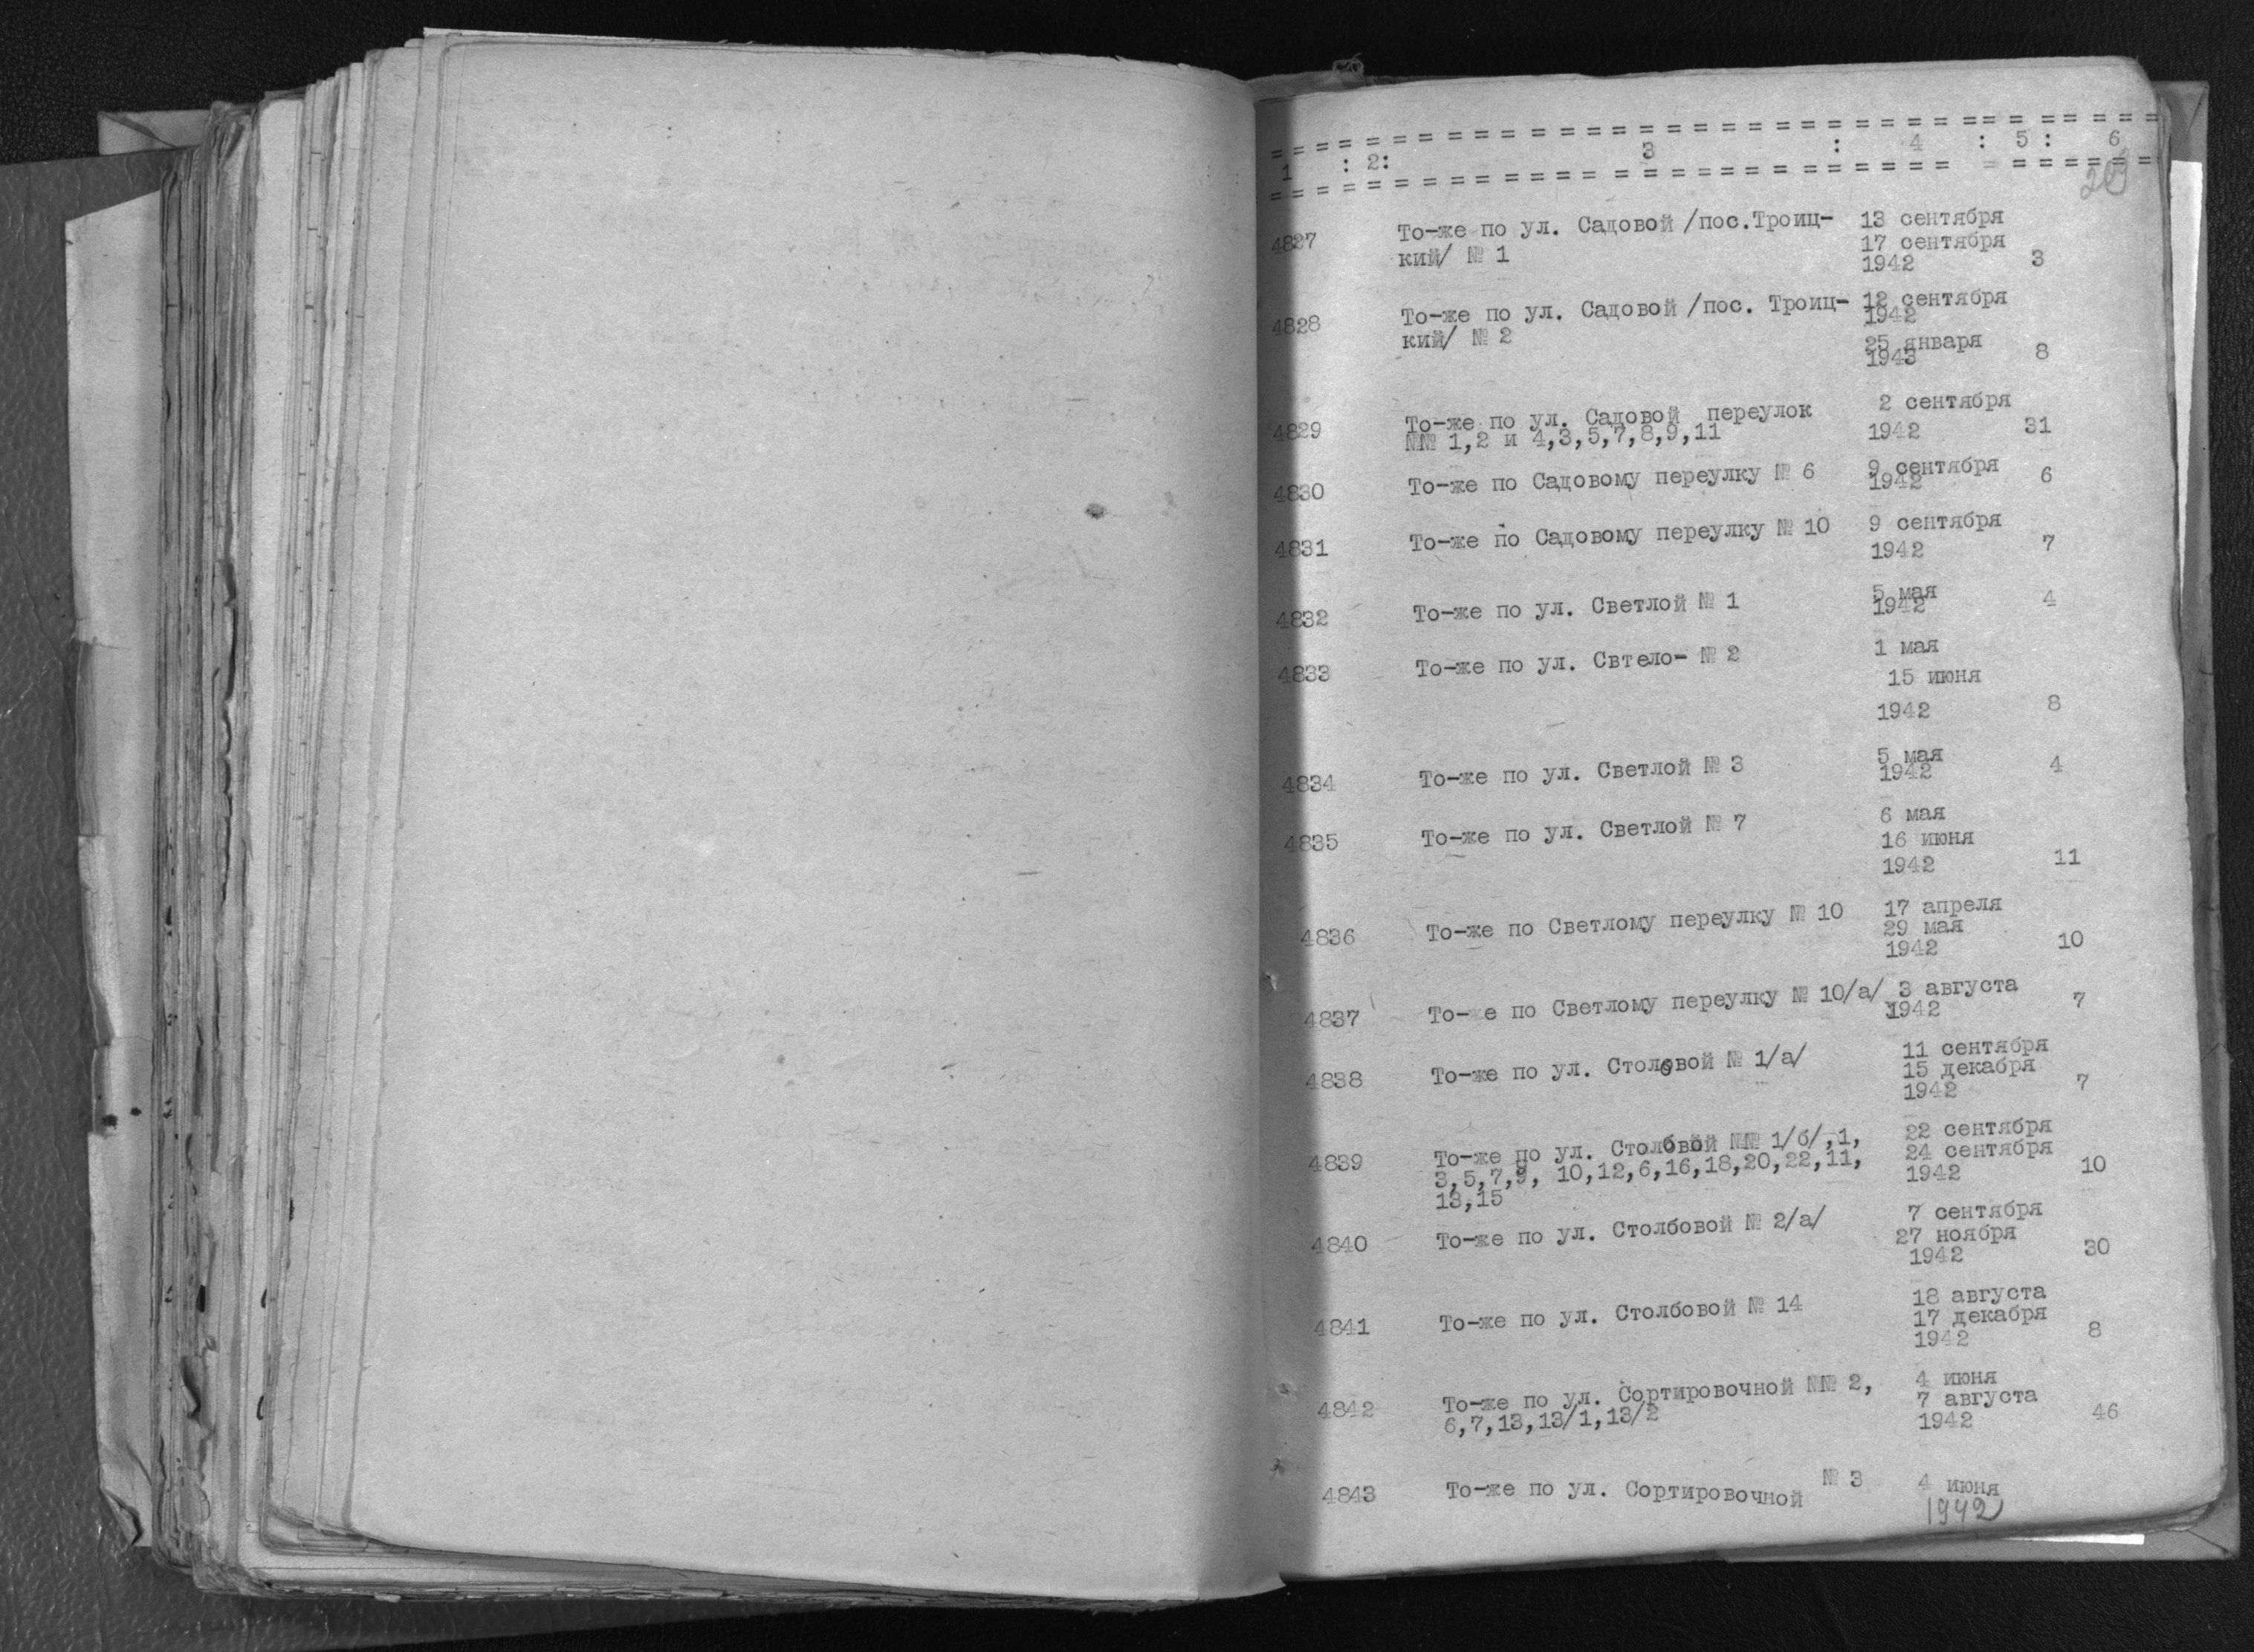 = = = = = = = = = = = = = = = = = = = = = = = = = = = = = = = = =
1 : 2: 3 : 4 : 5 : 6
= = = = = = = = = = = = = = = = = = = = = = = = = = = = = = = = =
4827 То-же по ул. Садовой /пос.Троиц- 13 сентября
17 сентября
кий/ № 1 1942 3
4828 То-же по ул. Садовой /пос. Троиц- 12 сентября
1942
кий/ № 2
25 января
1943 8
2 сентября
4829 То-же по ул. Садовой переулок
№№ 1,2 и 4,3,5,7,8,9,11 1942 31
4830 То-же по Садовому переулку № 6 9 сентября
1942 6
4831 То-же по Садовому переулку № 10 9 сентября
1942 7
4832 То-же по ул. Светлой № 1 5 мая
1942 4
4833 То-же по ул. Свтело- № 2 1 мая
15 июня
1942 8
4834 То-же по ул. Светлой № 3 5 мая
1942 4
4835 То-же по ул. Светлой № 7 6 мая
16 июня
1942 11
4836 То-же по Светлому переулку № 10 17 апреля
29 мая
1942 10
4837 То-же по Светлому переулку № 10/а/ 3 августа
1942 7
4838 То-же по ул. Столбвой № 1/а/ 11 сентября
15 декабря
1942 7
4839 То-же по ул. Столбвой №№ 1/б/,1, 22 сентября
3,5,7,9, 10,12,6,16,18,20,22,11, 24 сентября
13,15 1942 10
4840 То-же по ул. Столбовой № 2/а/ 7 сентября
27 ноября
1942 30
4841 То-же по ул. Столбовой № 14 18 августа
17 декабря
1942 8
4842 То-же по ул. Сортировочной №№ 2, 4 июня
6,7,13,13/1,13/2 7 августа
1942 46
4843 То-же по ул. Сортировочной № 3 4 июня
1942